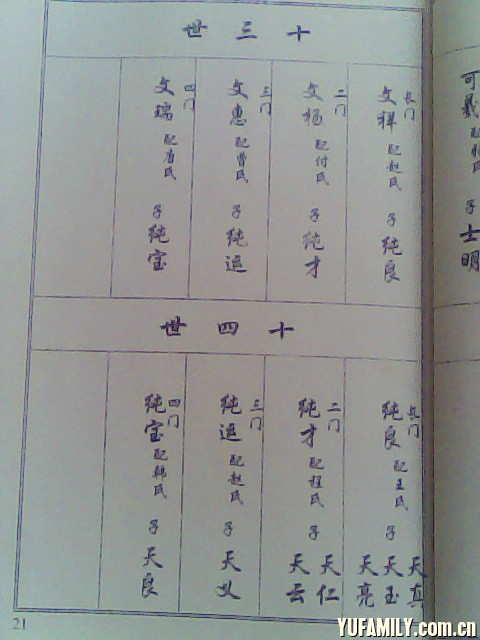 十三世
長门
文祥 配赵氏 子 纯良
二门
文極 配付氏 子 纯才
三门
文惠 配曹氏 子 纯运
四门
文瑞 配唐氏 子 纯宝
十四世
長门
纯良 配王氏 子 天真 天玉 天亮
二门
纯才 配程氏 子 天仁 天云
三门
纯运 配赵氏 子 天义
四门
纯宝 配韩氏 子 天良
可義 子 士明
21
YUFAMILY.com.cn